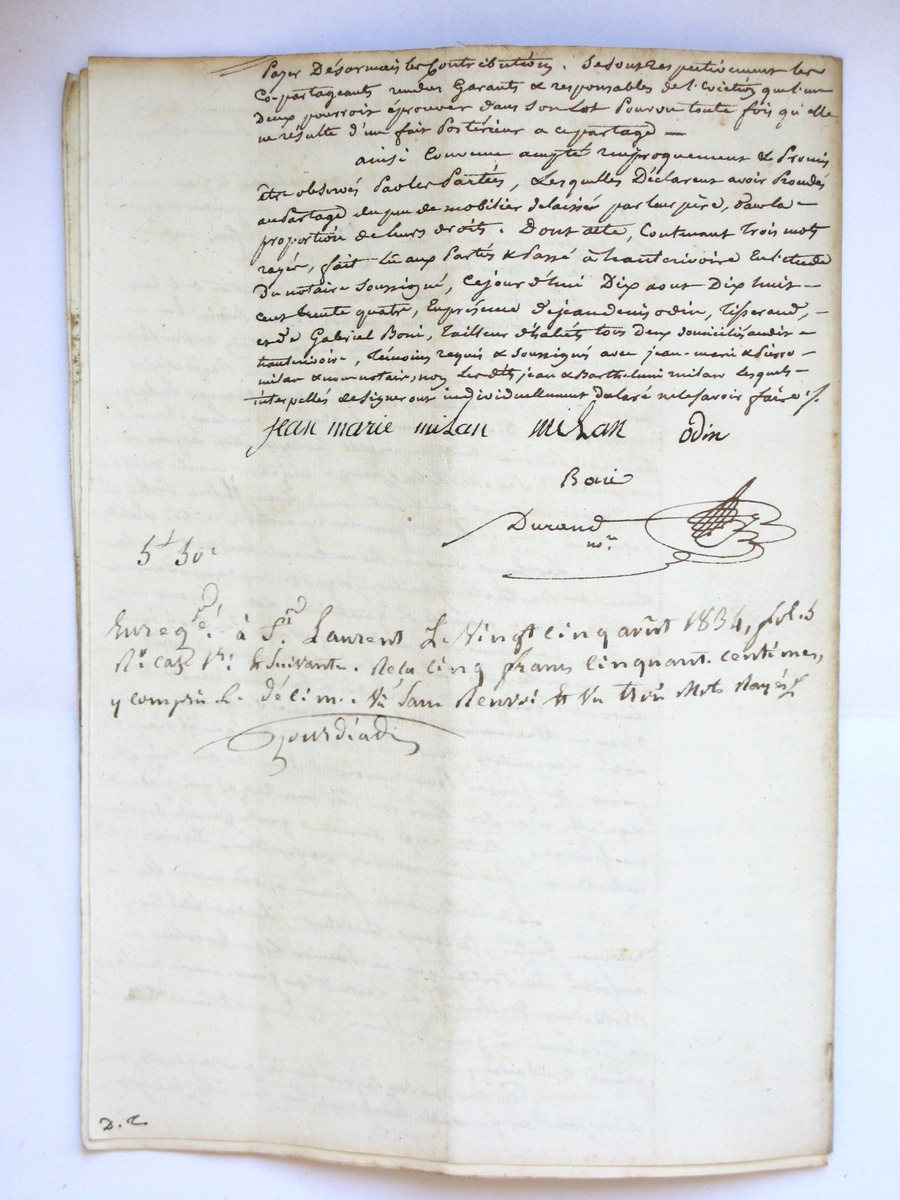 Payer Désormais les Contributions. Se sont respectivement les
Co-partageants rendus Garants & responsables de l'éviction que l'un
Deux pourroit éprouver dans son lot Pourvu toute fois qu'elle
ne résulte d'un fait Postérieur a ce partage —
ainsi Convenu accepté réciproquement & Promis
être observés Par les Parties, Lesquelles Déclarent avoir Procédés
au Partage du peu de mobilier délaissé par leur père, dans la
proportion de leurs droits. Dont acte, Contenant Trois mots
rayés, fait lu aux Parties & Passé à hauterivoire En l'étude
Du notaire soussigné, cejourd'hui Dix aout Dix huit
cent trente quatre, En présence de jean denis odin, Tisserand,
et de Gabriel Boni, Tailleur d'habits tous deux domiciliés audit
hauterivoire, Témoins requis & soussignés avec jean-marie & Pierre
milan & nous notaire, non les dits jean & Barthelemi milan lesquels
interpellés de signer ont individuellement déclaré ne le savoir faire ./.
jean marie milan milan odin
Boni
Durand
nre
5f 50c
Enregtré à St Laurent Le Vingt cinq août 1834, fol. 5
Ro case 1re & suivante. Reçu cinq francs cinquante centimes,
y compris le décime. Vu sans Renvoi & Vu trois Mots Rayés
D. C.